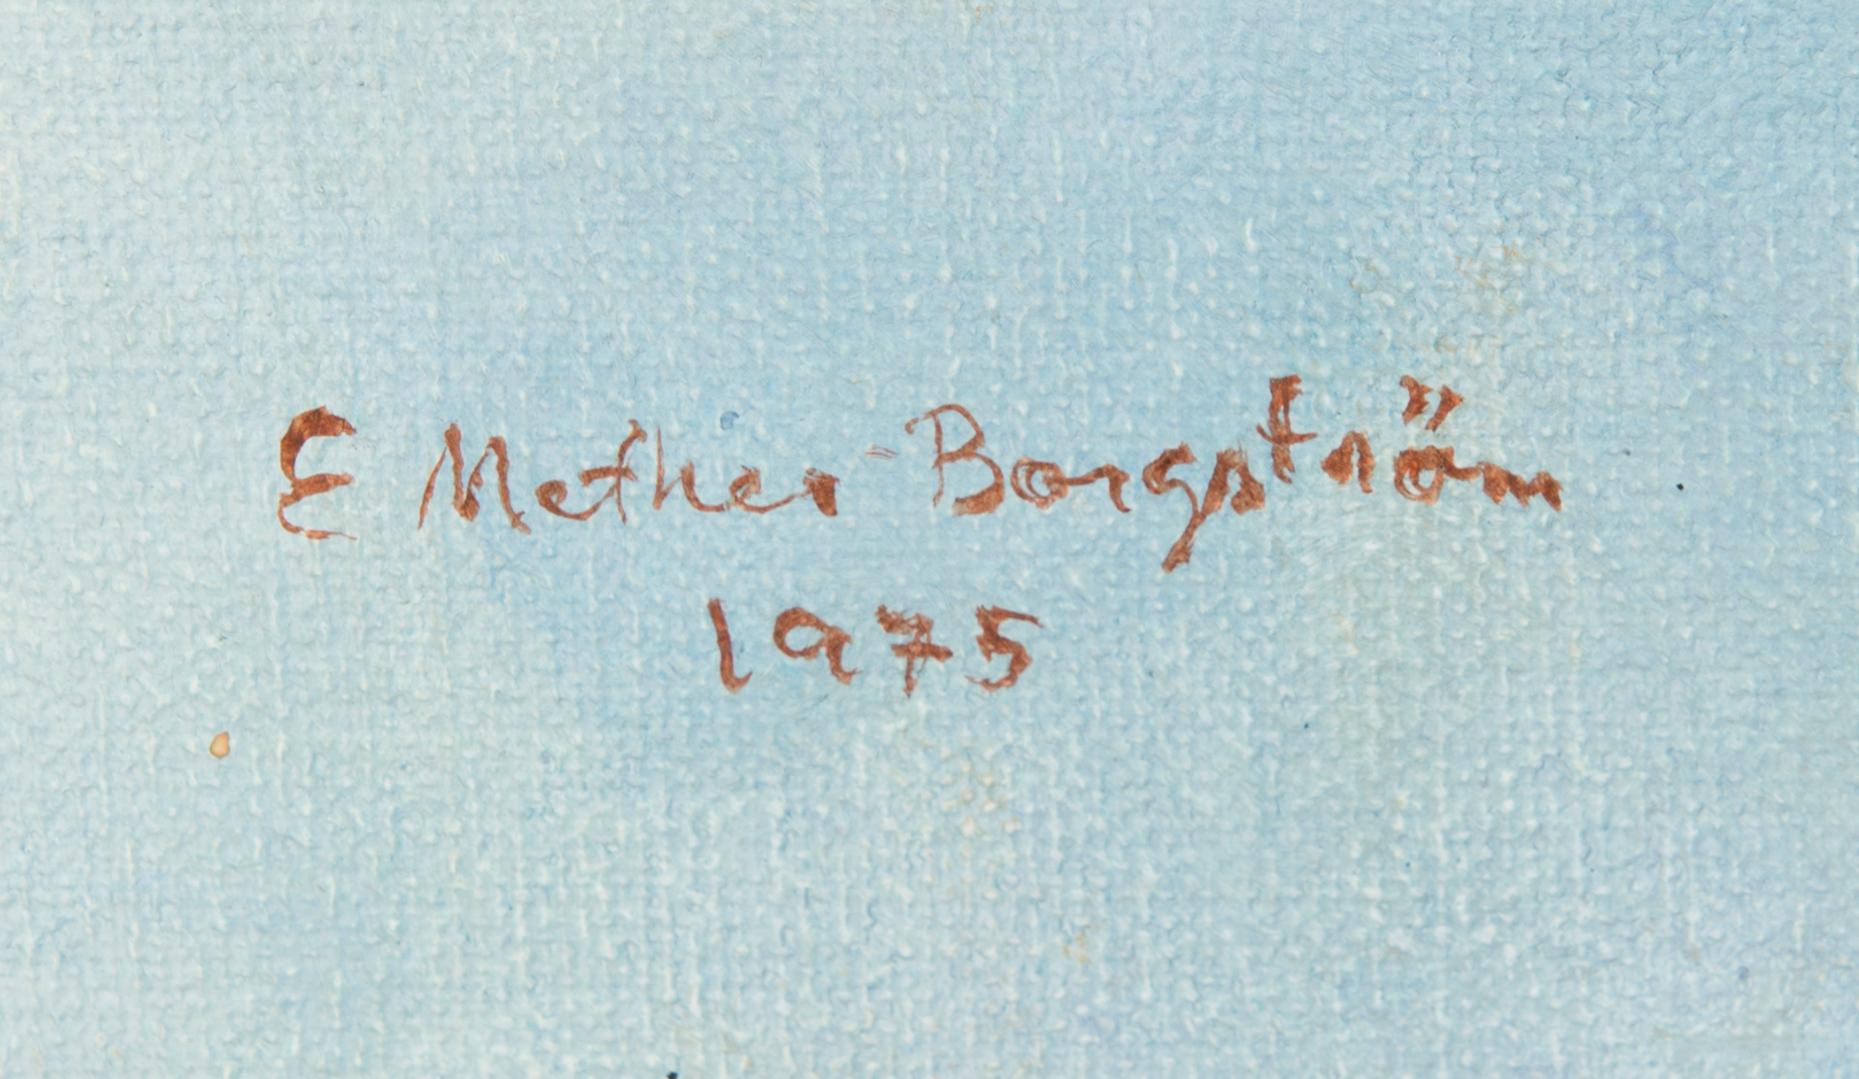 E Mether-Borgström
1975